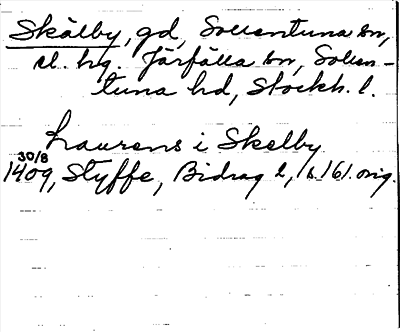 Skälby, gd, Sollentuna sn,
sl. hg. Järfälla sn, Sollen-
tuna hd, Stockh. l.
Laurens i Skelby
30/8
1409, Styffe, Bidrag 2, s. 161. orig.